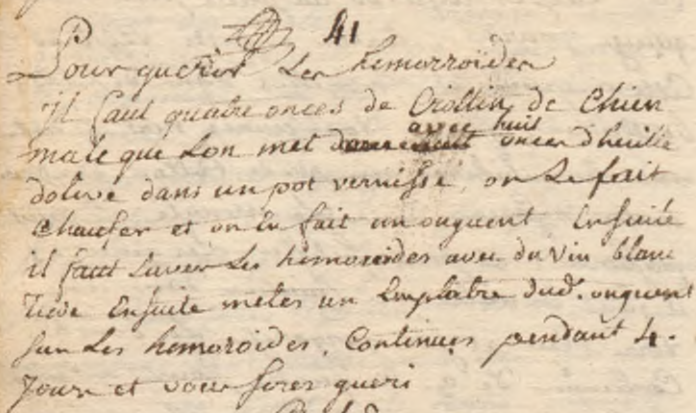 41
Pour guerir Les hemorroïdes
il faut quatre onces de Crottin de Chien
male que Lon met avec huit onces dheuille
dolive dans un pot vernisse, on Le fait
Chaufer et on En fait un onguent Ensuite
il faut Laver Les hemoroides avec du vin blanc
Tiede Ensuite metes un Emplatre dud. onguent
sur Les hemoroides. Continues pendant 4.
Jours et vous seres gueri